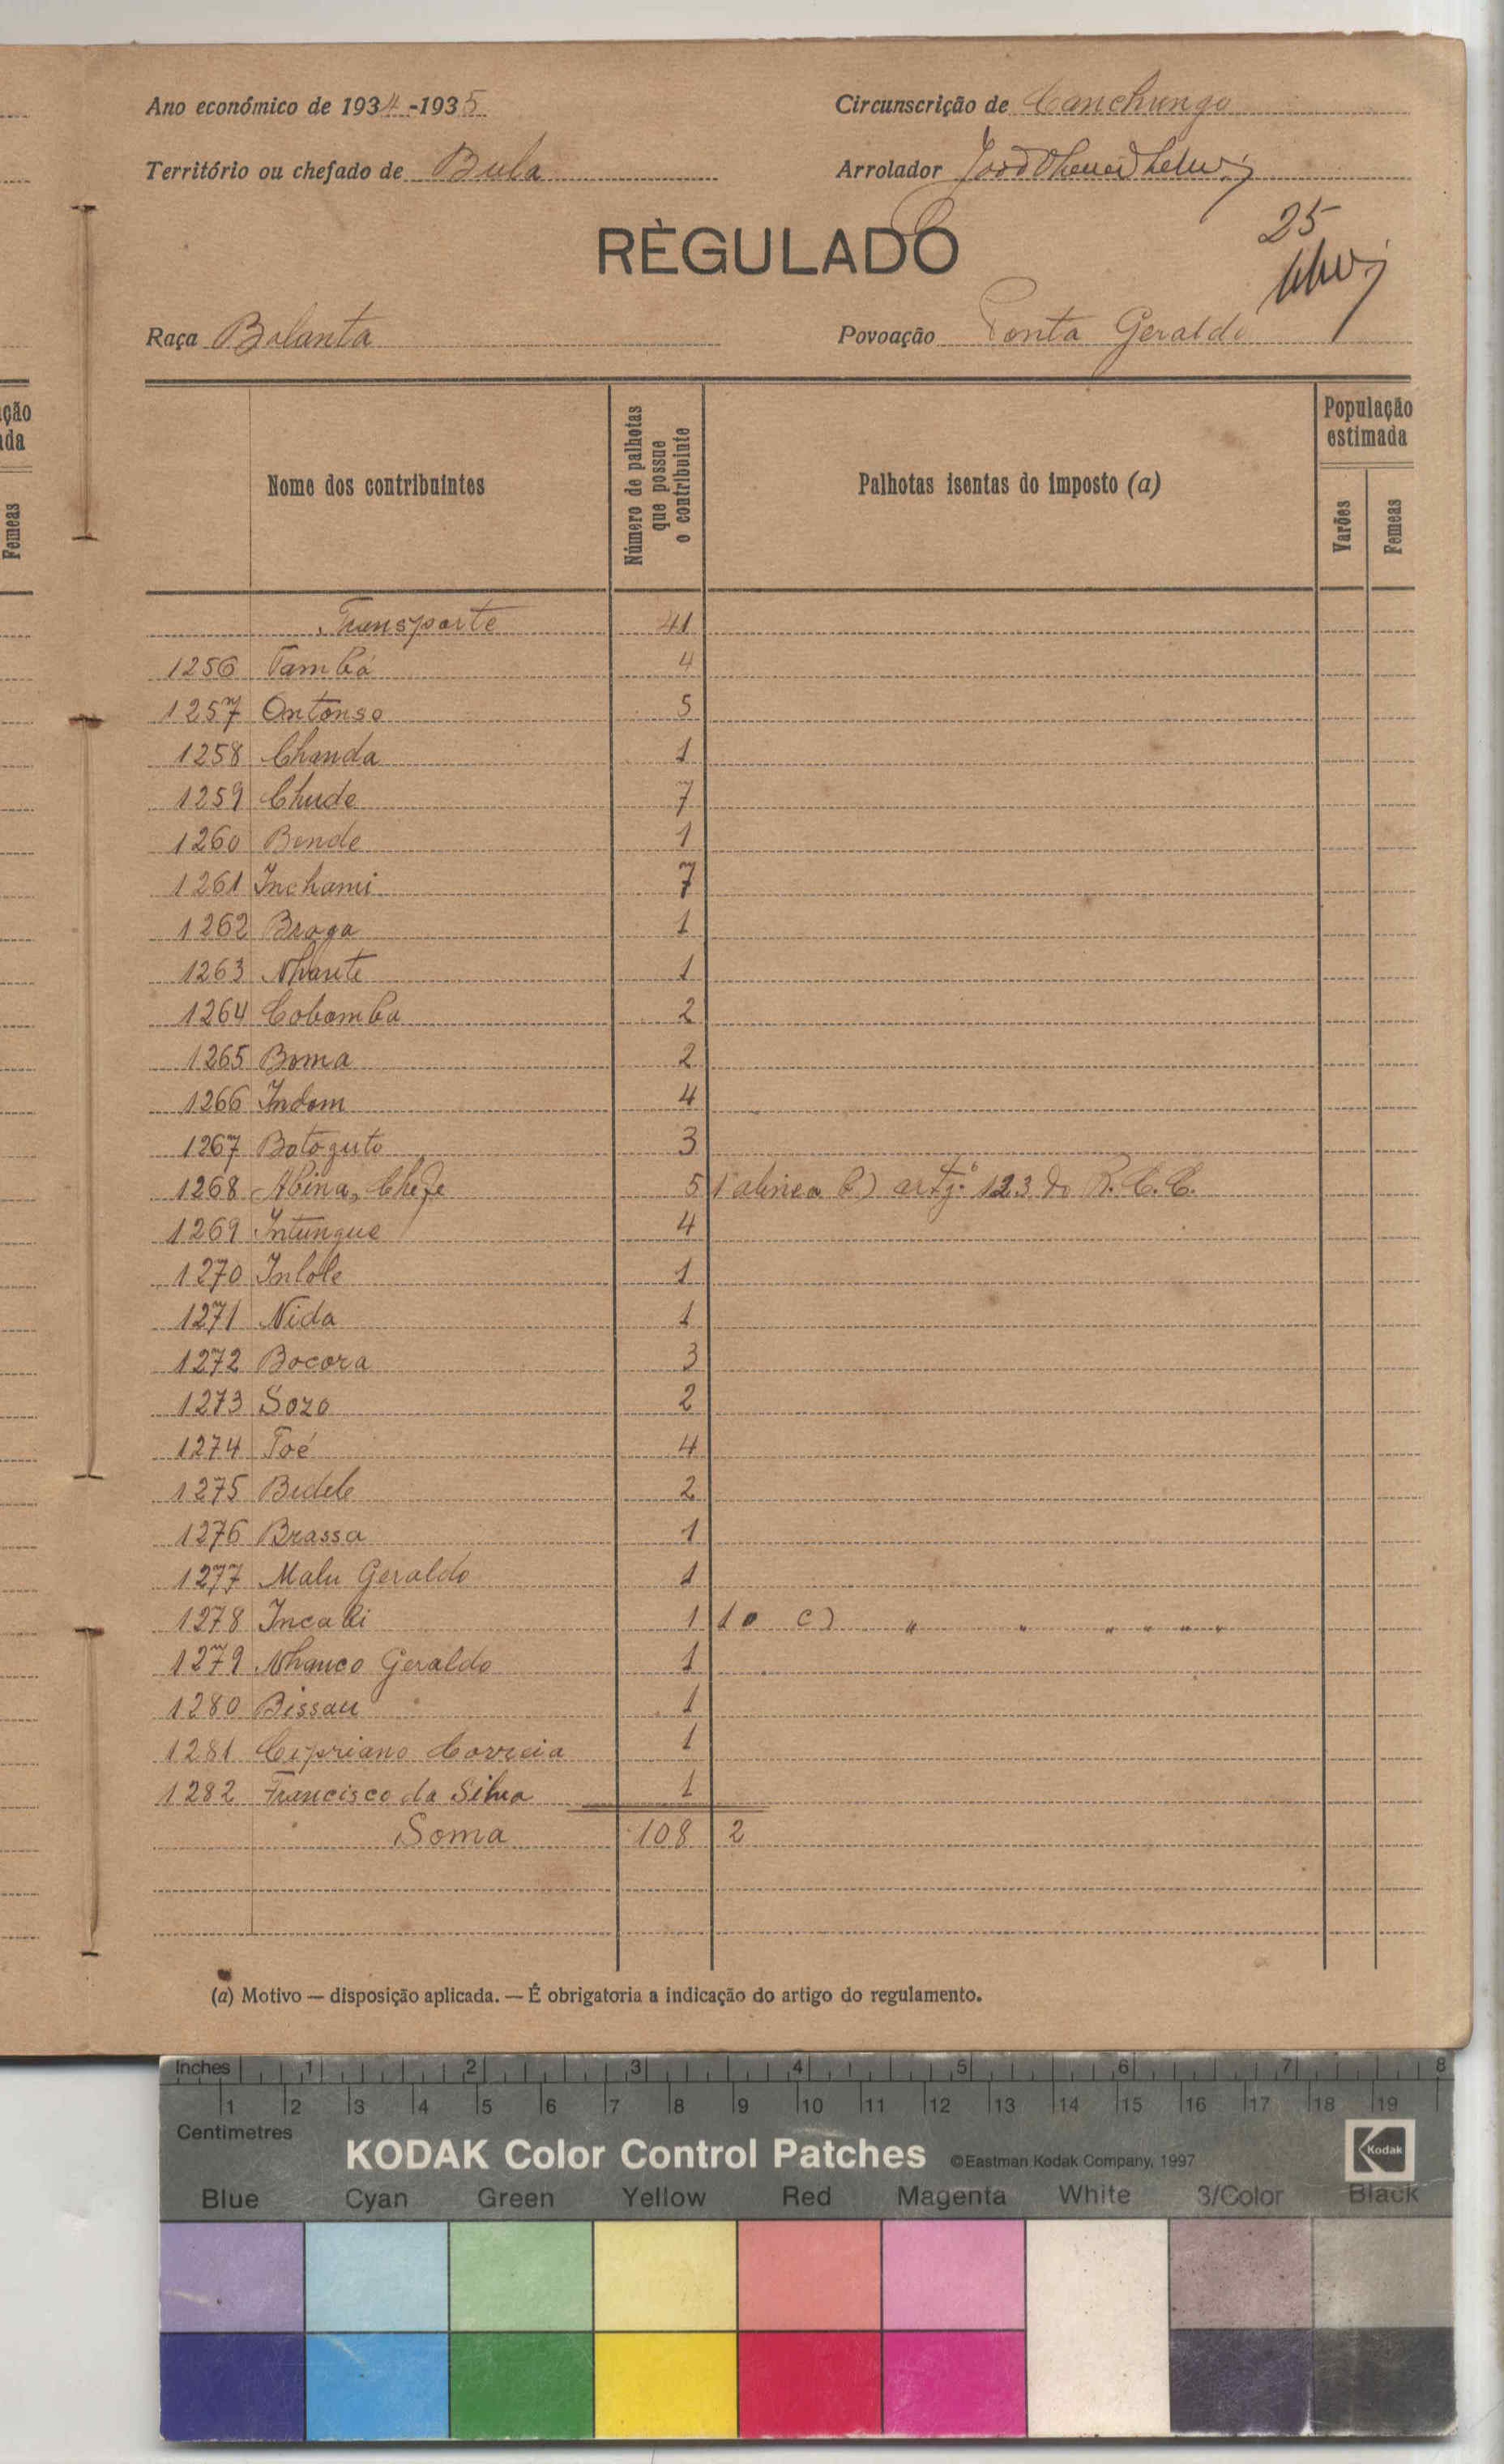 Ano económico de 1934-1935
Circunscrição de Canchungo
Território ou chefado de Bula
Arrolador
RÈGULADO
25
Raça Balanta
Povoação Ponta Geraldo
ção
da
Femeas
Nome dos contribuintes
Número de palhotas que possue o contribuinte
Palhotas isentas do imposto (a)
População estimada
Varões
Femeas
Transporte 41
1256 Tambá 4
1257 Ontonso 5
1258 Chanda 1
1259 Chude 7
1260 Bende 1
1261 Inchami 7
1262 Braga 1
1263 Nhante 1
1264 Cobomba 2
1265 Boma 2
1266 Indom 4
1267 Botoguto 3
1268 Abina, Chefe 5 1 alinea b) artg.º 123 do R. C. C.
1269 Intungue 4
1270 Inlole 1
1271 Nida 1
1272 Bocora 3
1273 Sozo 2
1274 Toé 4
1275 Bidele 2
1276 Brassa 1
1277 Malu Geraldo 1
1278 Incabi 1 1 " c) " " " " " "
1279 Nhanco Geraldo 1
1280 Bissau 1
1281 Cipriano Correia 1
1282 Francisco da Silva 1
Soma 108 2
(a) Motivo — disposição aplicada. — É obrigatoria a indicação do artigo do regulamento.
Inches 1 2 3 4 5 6 7 8
1 2 3 4 5 6 7 8 9 10 11 12 13 14 15 16 17 18 19
Centimetres
KODAK Color Control Patches ©Eastman Kodak Company, 1997 Kodak
Blue Cyan Green Yellow Red Magenta White 3/Color Black